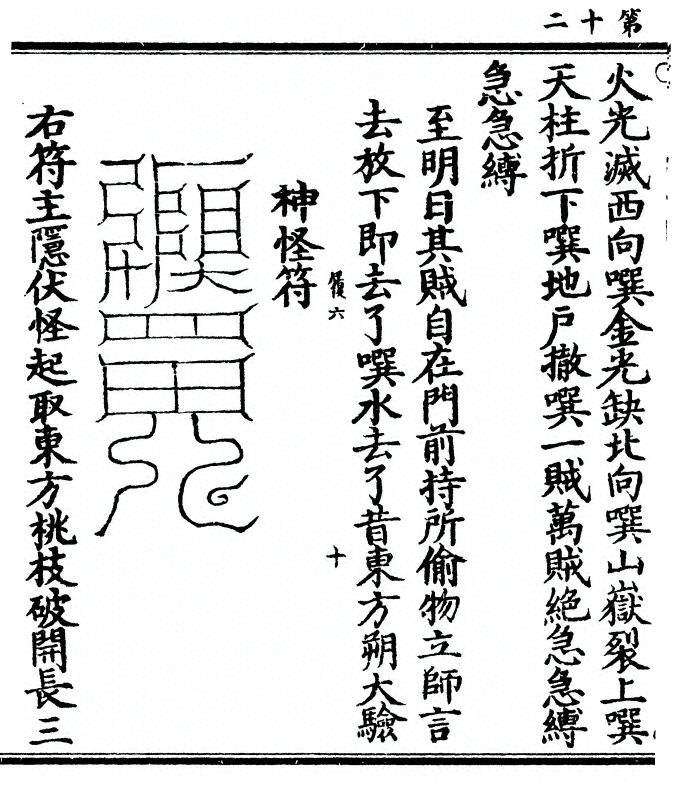 第十二
火光滅西向噀金光缺北向噀山嶽裂上噀
天柱折下噀地戶撤噀一賊萬賊絶急急縛
急急縛
至明日其賊自在門前持所偷物立師言
去放下即去了噀水去了昔東方朔大驗
履六
十
神怪符
右符主隱伏怪起取東方桃枝破開長三